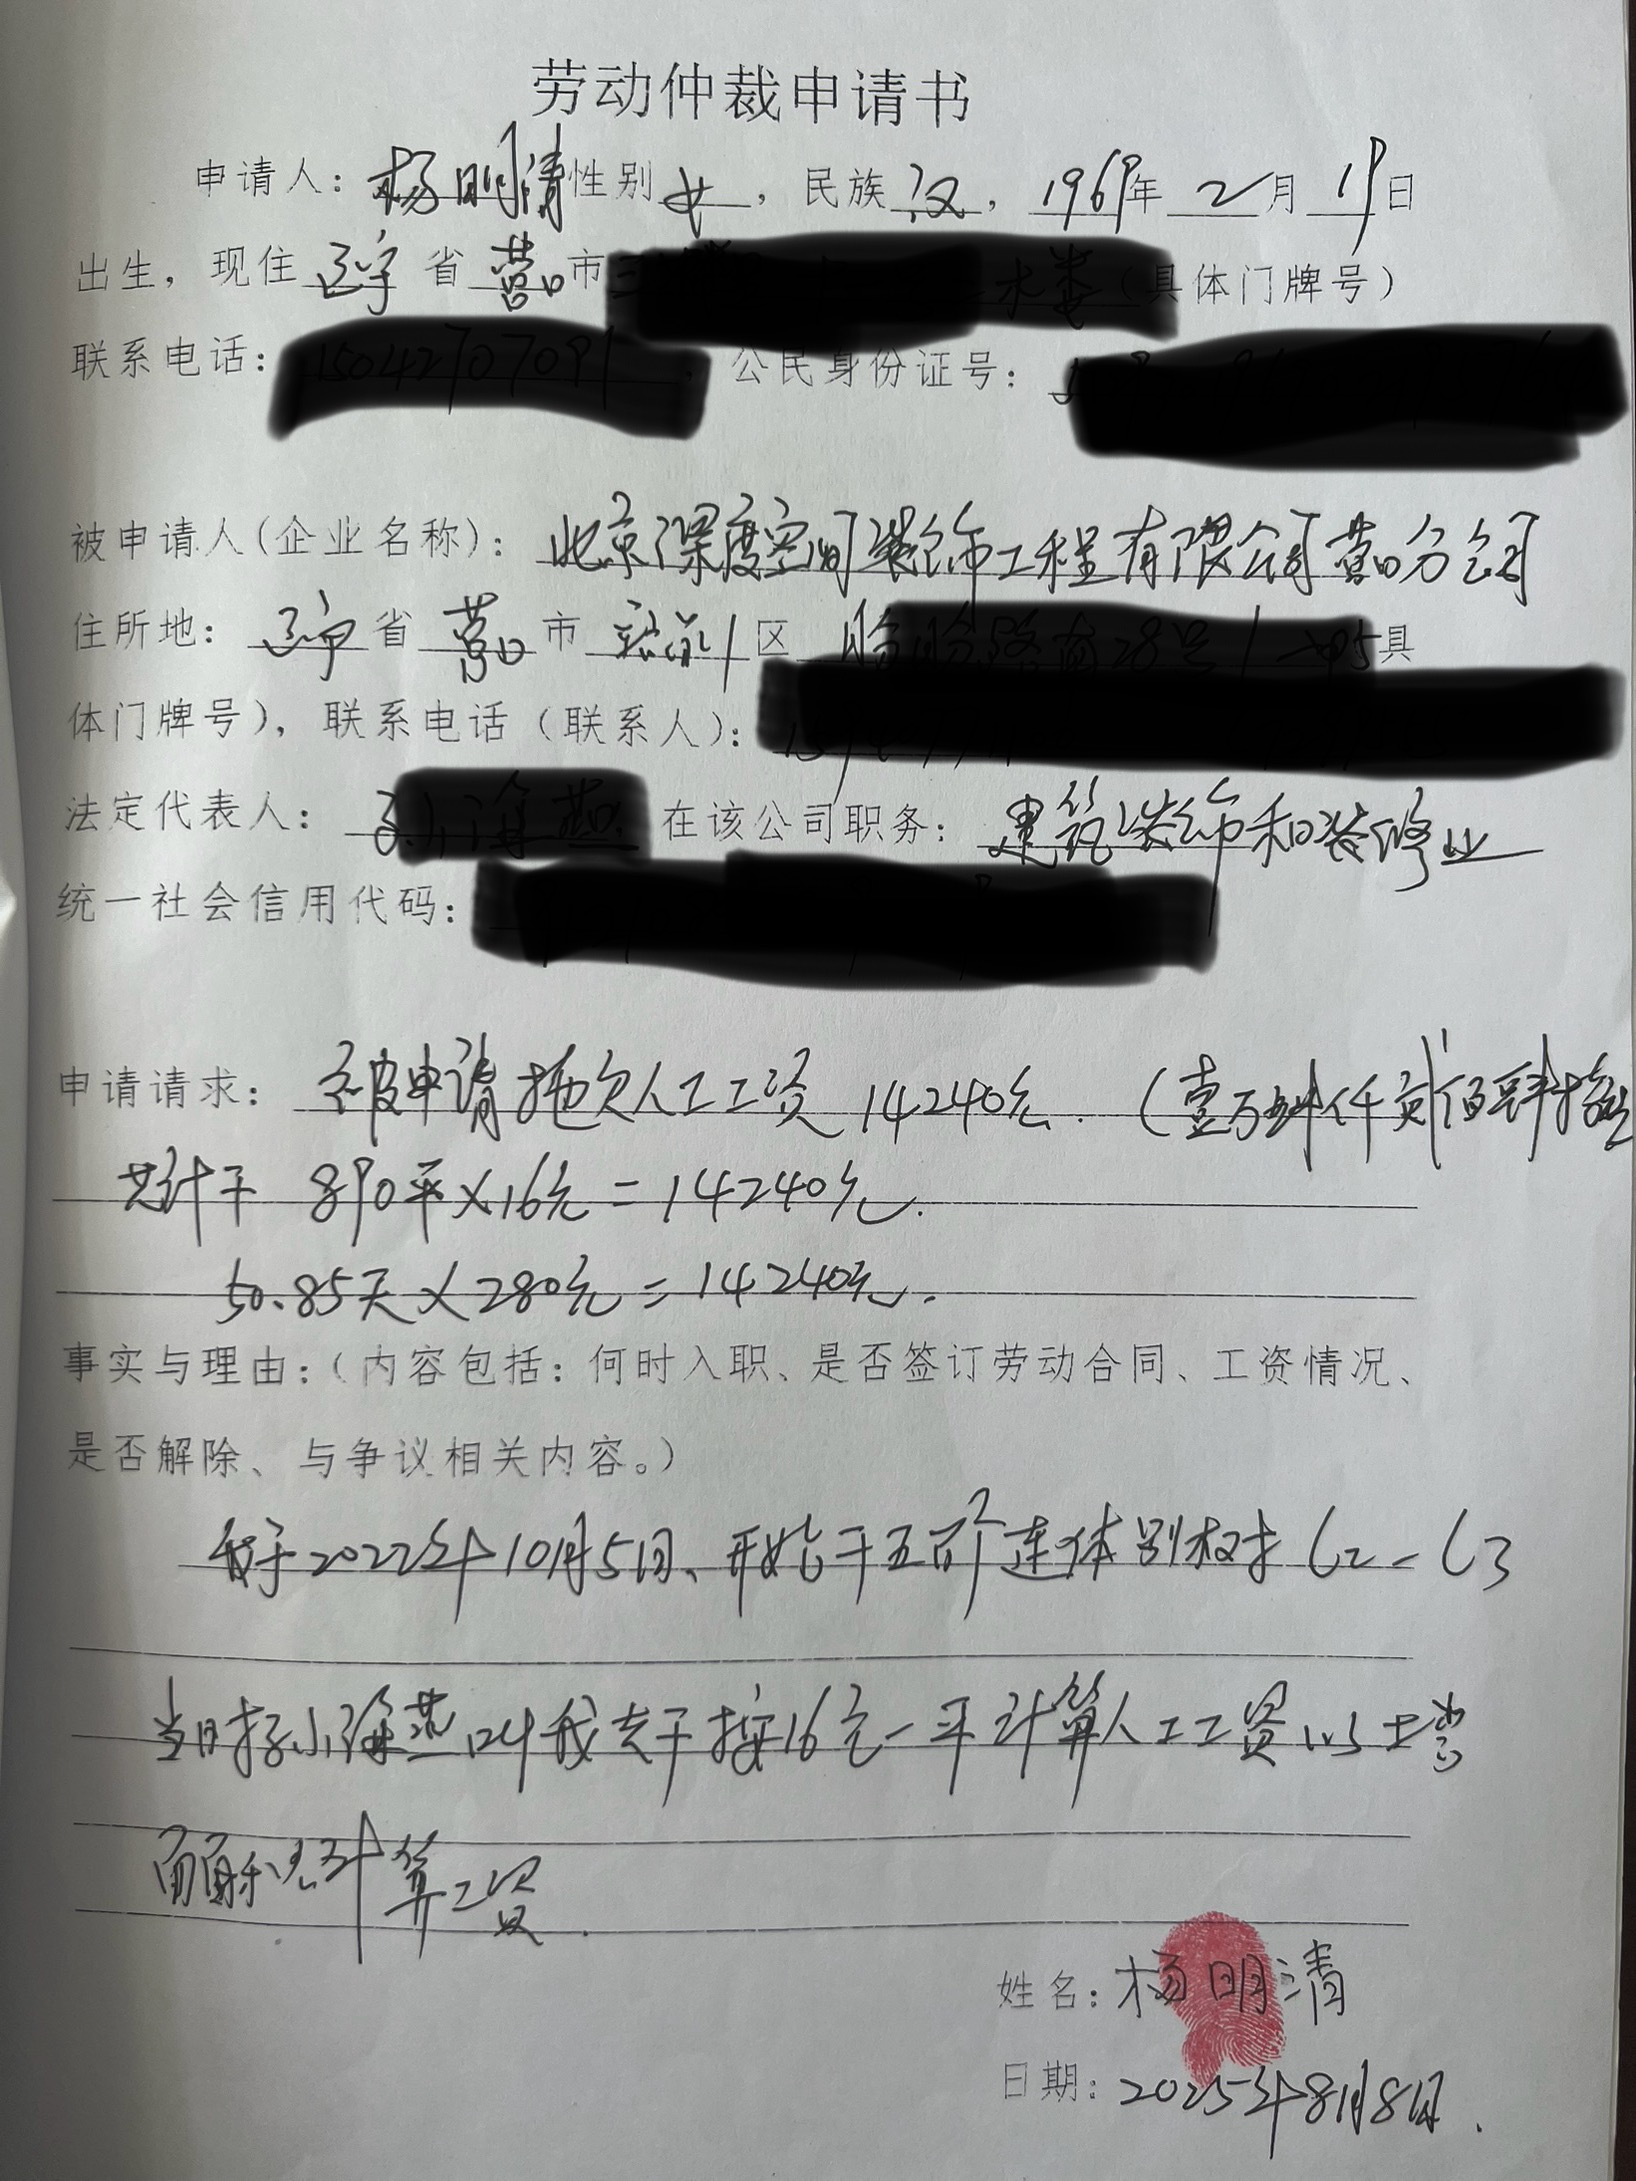 劳动仲裁申请书
申请人：杨明清 性别 女，民族 汉，1969年 2月 19日
出生，现住 辽宁 省 营口 市（具体门牌号）
联系电话：，公民身份证号：
被申请人（企业名称）：北京深度空间装饰工程有限公司营口分公司
住所地：辽宁 省 营口 市 区 具
体门牌号），联系电话（联系人）：
法定代表人： 在该公司职务：建筑装饰和装修业
统一社会信用代码：
申请请求：被申请拖欠人工工资14240元．（壹万肆仟贰佰肆拾
共计干 890平×16元＝14240元．
50.85天×280元＝14240元．
事实与理由：（内容包括：何时入职、是否签订劳动合同、工资情况、
是否解除、与争议相关内容。）
我于2022年10月5日、开始干五 个连体别
当时 叫我去干按16元一平计算人工工资以上
面 计算工资．
姓名：杨明清
日期：2025年8月8日．